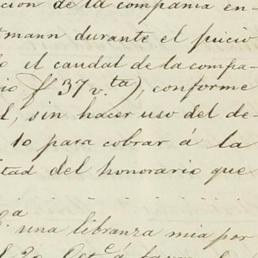 cion de la compañia en-
tmann durante el juicio
o el caudal de la compa-
io f 37 v.ta), conforme
l, sin hacer uso del de-
lo para cobrar á la
tad del honorario que
una libranza mia por